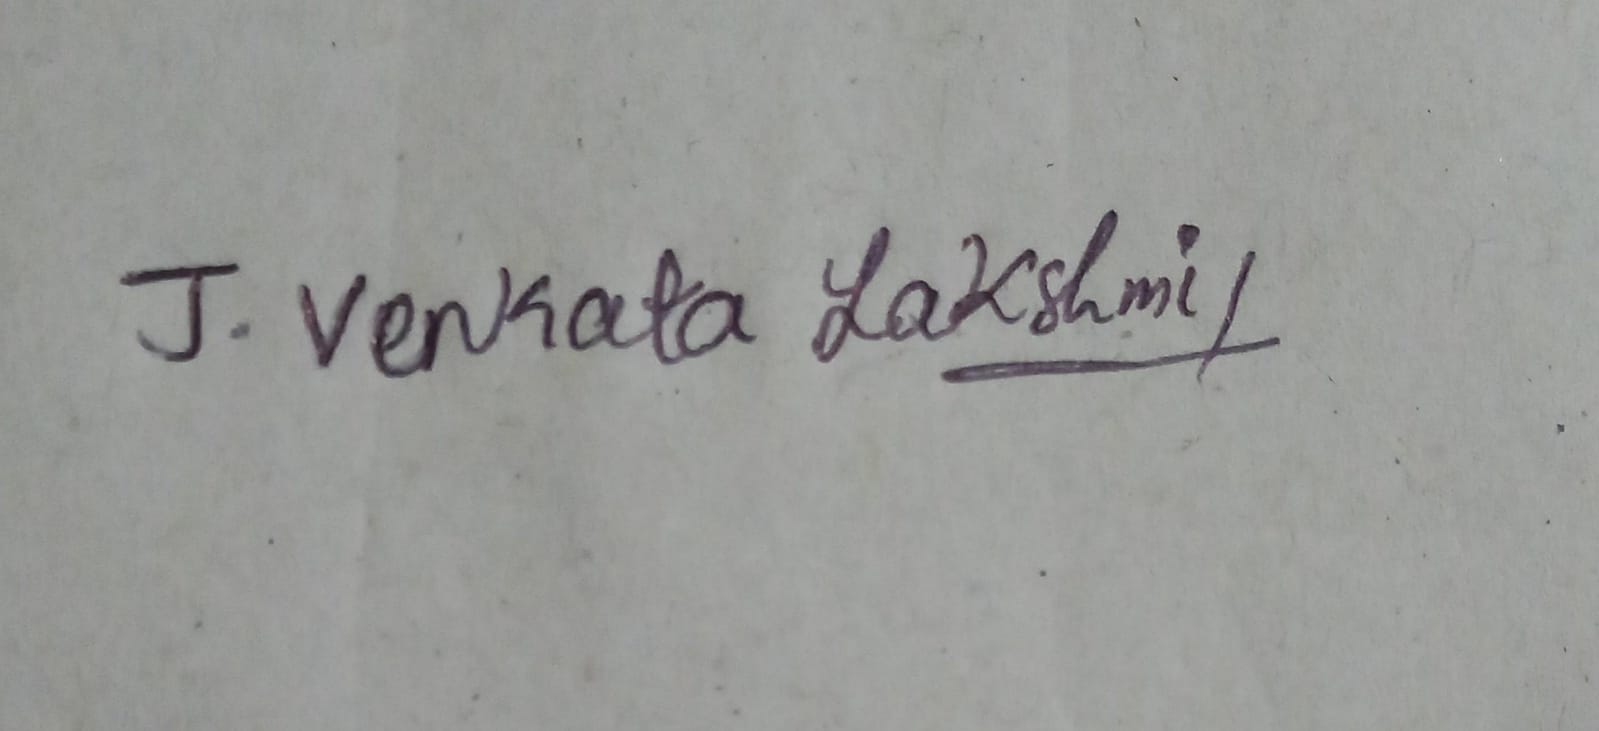 J. Venkata Lakshmi